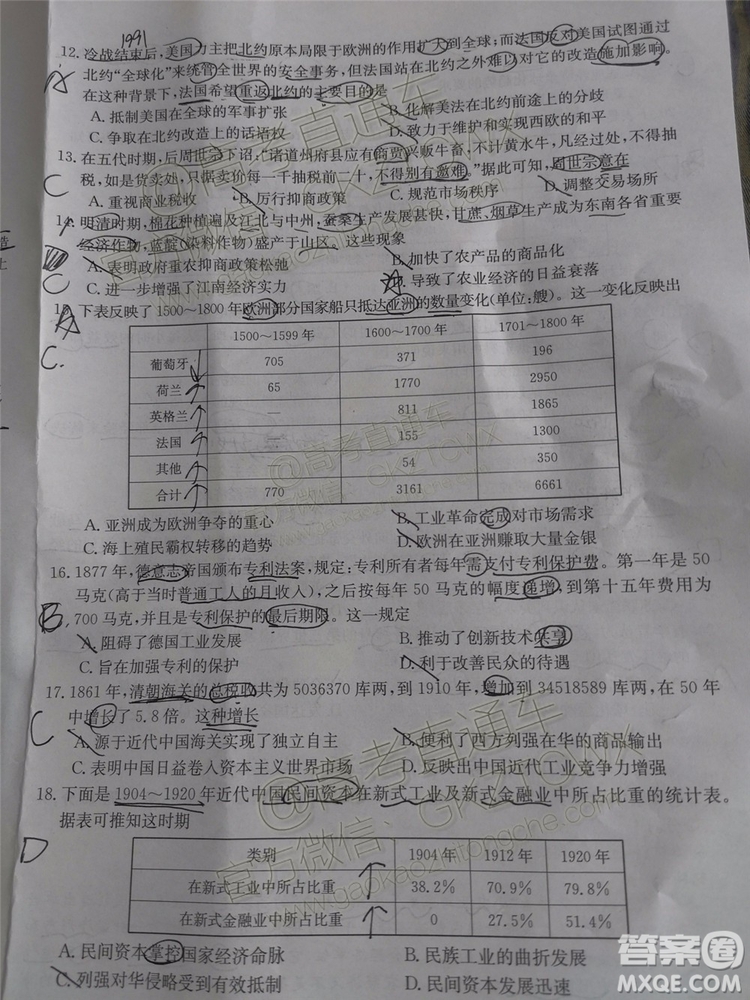 1991
12. 冷战结束后，美国力主把北约原本局限于欧洲的作用扩大到全球；而法国反对美国试图通过
北约“全球化”来统管全世界的安全事务，但法国站在北约之外难以对它的改造施加影响。
在这种背景下，法国希望重返北约的主要目的是
A. 抵制美国在全球的军事扩张 B. 化解美法在北约前途上的分歧
C. 争取在北约改造上的话语权 D. 致力于维护和实现西欧的和平
13. 在五代时期，后周世宗下诏，“诸道州府县应有商贾兴贩牛畜，不计黄牛水牛，凡经过处，不得抽
C
税，如是货卖处，只仰据卖价每一千抽税前二十，不得别有邀难。”据此可知，周世宗意在
A. 重视商业税收 B. 厉行抑商政策 C. 规范市场秩序 D. 调整交易场所
14. 明清时期，棉花种植遍及江北与中州，蚕桑生产发展甚快，甘蔗、烟草生产成为东南各省重要
经济作物，蓝靛（染料作物）盛产于山区。这些现象
A. 表明政府重农抑商政策松弛 B. 加快了农产品的商品化
C
C. 进一步增强了江南经济实力 D. 导致了农业经济的日益衰落
15. 下表反映了 1500～1800 年欧洲部分国家船只抵达亚洲的数量变化（单位：艘）。这一变化反映出
C.
1500～1599 年 1600～1700 年 1701～1800 年
葡萄牙 705 371 196
荷兰 65 1770 2950
英格兰 — 811 1865
法国 — 155 1300
其他 — 54 350
合计 770 3161 6661
A. 亚洲成为欧洲争夺的重心 B. 工业革命完成对市场需求
C. 海上殖民霸权转移的趋势 D. 欧洲在亚洲赚取大量金银
16. 1877 年，德意志帝国颁布专利法案，规定：专利所有者每年需支付专利保护费。第一年是 50
马克（高于当时普通工人的月收入），之后按每年 50 马克的幅度递增，到第十五年费用为
B
700 马克，并且是专利保护的最后期限。这一规定
A. 阻碍了德国工业发展 B. 推动了创新技术共享
C. 旨在加强专利的保护 D. 利于改善民众的待遇
17. 1861 年，清朝海关的总税收共为 5036370 库两，到 1910 年，增加到 34518589 库两，在 50 年
中增长了 5.8 倍。这种增长
C
A. 源于近代中国海关实现了独立自主 B. 便利了西方列强在华的商品输出
C. 表明中国日益卷入资本主义世界市场 D. 反映出中国近代工业竞争力增强
18. 下面是 1904～1920 年近代中国民间资本在新式工业及新式金融业中所占比重的统计表。
据表可推知这时期
D
类别 1904 年 1912 年 1920 年
在新式工业中所占比重 38.2% 70.9% 79.8%
在新式金融业中所占比重 0 27.5% 51.4%
A. 民间资本掌控国家经济命脉 B. 民族工业的曲折发展
C. 列强对华侵略受到有效抵制 D. 民间资本发展迅速
@高考直通车
官方微信：GKZTCWX
www.gaokaozhitongche.com
答案圈
MXQE.COM